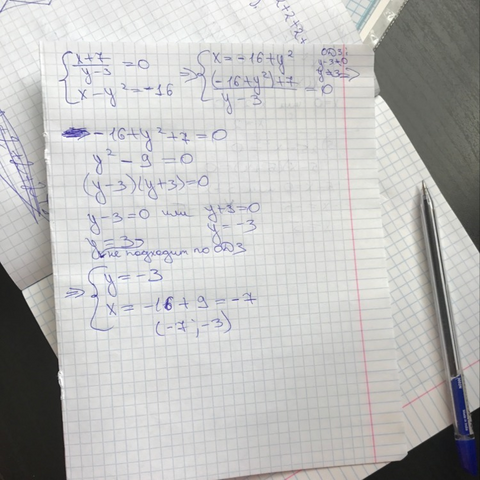 { (x+7)/(y-3) = 0 ; x - y² = -16 ⇒ { x = -16 + y² ; ((-16+y²)+7)/(y-3) = 0
ОДЗ:
y-3≠0
y≠3 ⇒
-16+y²+7=0
y² - 9 = 0
(y-3)(y+3)=0
y-3=0 или y+3=0
y=3 y=-3
не подходит по ОДЗ
⇒ { y = -3
x = -16 + 9 = -7
(-7; -3)